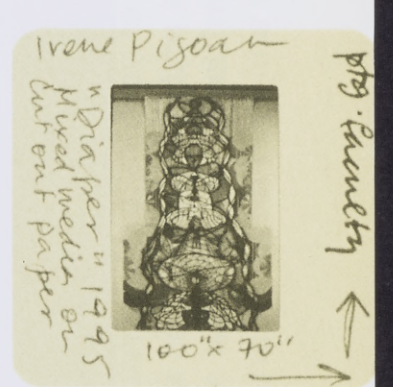 Irene Pijoan
"Diaper" 1995
Mixed media on
cut out paper
100" x 70"